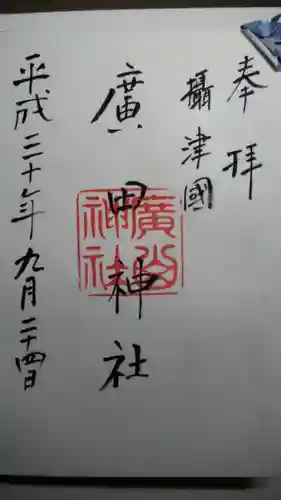 奉拝
攝津國
廣田神社
廣田神社
平成三十年九月二十四日